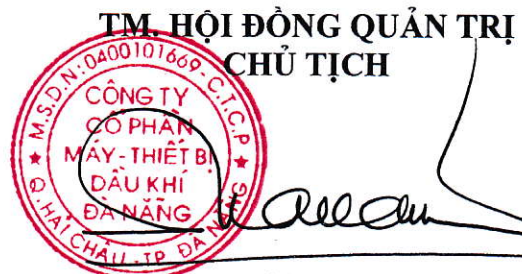 TM. HỘI ĐỒNG QUẢN TRỊ
CHỦ TỊCH
M.S.D.N:0400101669-C.T.C.P
CÔNG TY
CỔ PHẦN
MÁY-THIẾT BỊ
DẦU KHÍ
ĐÀ NẴNG
Q.HẢI CHÂU-TP. ĐÀ NẴNG